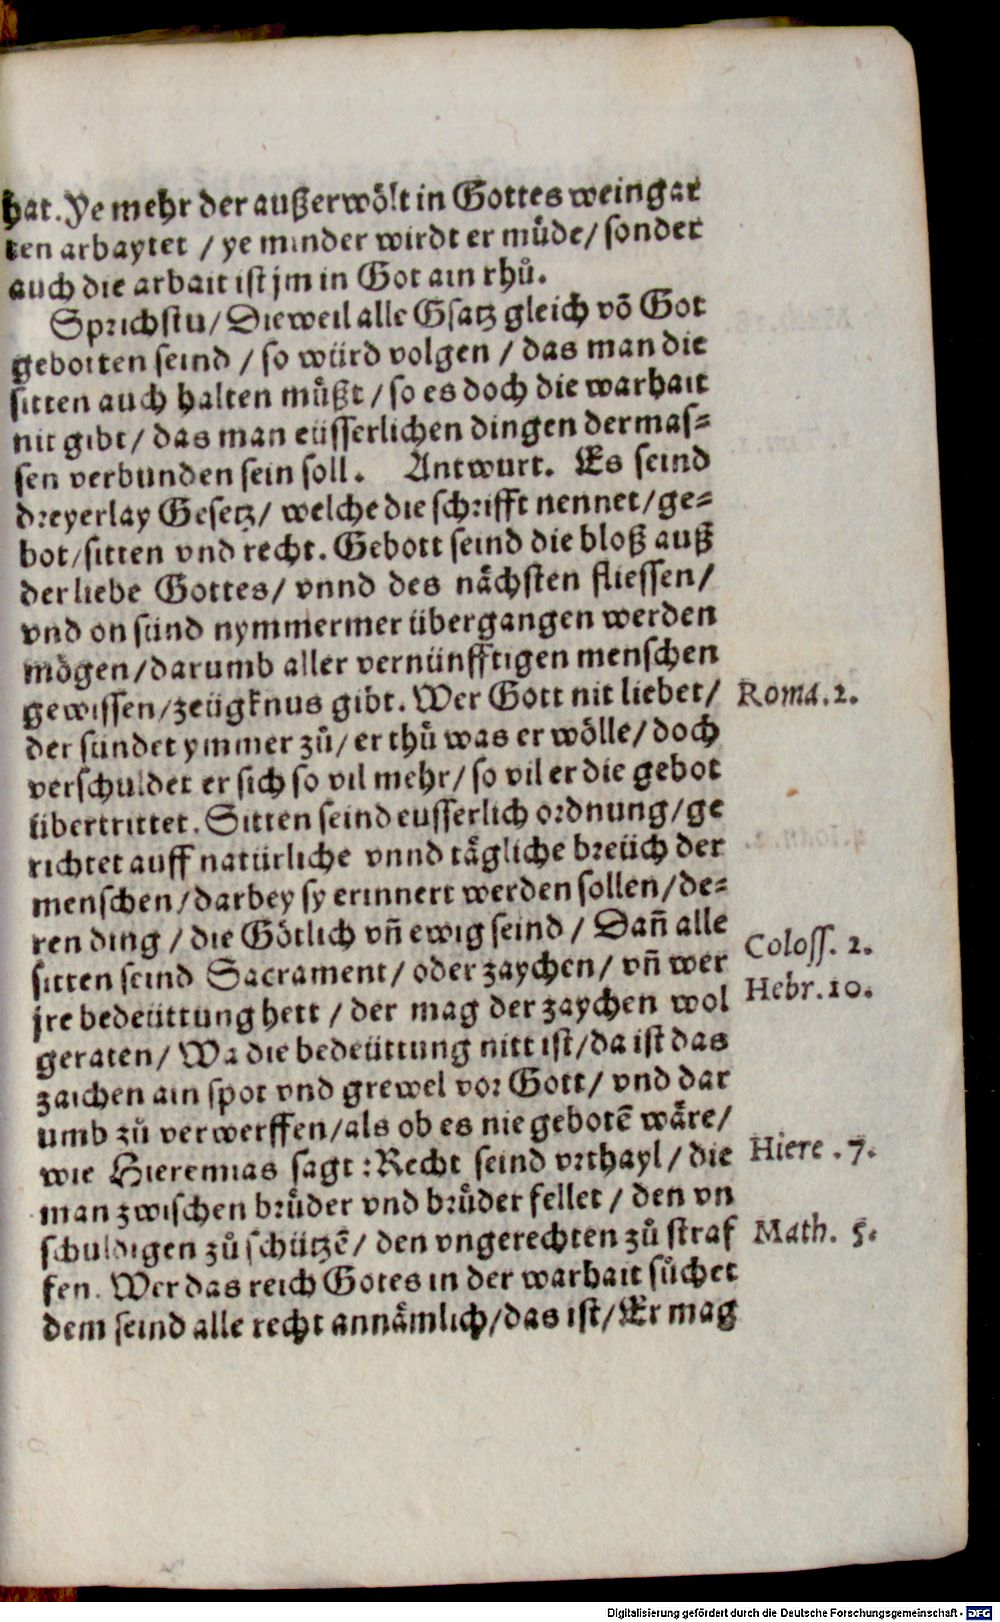 hat. Ye mehr der außerwoͤlt in Gottes weingar
ten arbaytet / ye minder wirdt er muͤde / sonder
auch die arbait ist jm in Got ain rhuͦ.
Sprichstu / Dieweil alle Gsatz gleich võ Got
gebotten seind / so würd volgen / das man die
sitten auch halten muͤßt / so es doch die warhait
nit gibt / das man eüsserlichen dingen dermas⸗
sen verbunden sein soll. Antwurt. Es seind
dreyerlay Gesetz / welche die schrifft nennet / ge⸗
bot / sitten vnd recht. Gebott seind die bloß auß
der liebe Gottes / vnnd des naͤchsten fliessen /
vnd on sünd nymmermer übergangen werden
moͤgen / darumb aller vernünfftigen menschen
gewissen / zeügknus gibt. Wer Gott nit liebet / Roma. 2.
der sündet ymmer zuͦ / er thuͦ was er woͤlle / doch
verschuldet er sich so vil mehr / so vil er die gebot
übertrittet. Sitten seind eusserlich ordnung / ge
richtet auff natürliche vnnd taͤgliche breüch der
menschen / darbey sy erinnert werden sollen / de⸗
ren ding / die Goͤtlich vñ ewig seind / Dañ alle
sitten seind Sacrament / oder zaychen / vñ wer Coloss. 2.
jre bedeüttung hett / der mag der zaychen wol Hebr. 10.
geraten / Wa die bedeüttung nitt ist / da ist das
zaichen ain spot vnd grewel vor Gott / vnd dar
umb zuͦ verwerffen / als ob es nie gebotẽ waͤre /
wie Hieremias sagt : Recht seind vrthayl / die Hiere . 7.
man zwischen bruͤder vnd bruͤder fellet / den vn
schuldigen zuͦ schützẽ / den vngerechten zuͦ straf Math. 5.
fen. Wer das reich Gotes in der warhait suͦchet
dem seind alle recht annaͤmlich / das ist / Er mag
Digitalisierung gefördert durch die Deutsche Forschungsgemeinschaft - DFG